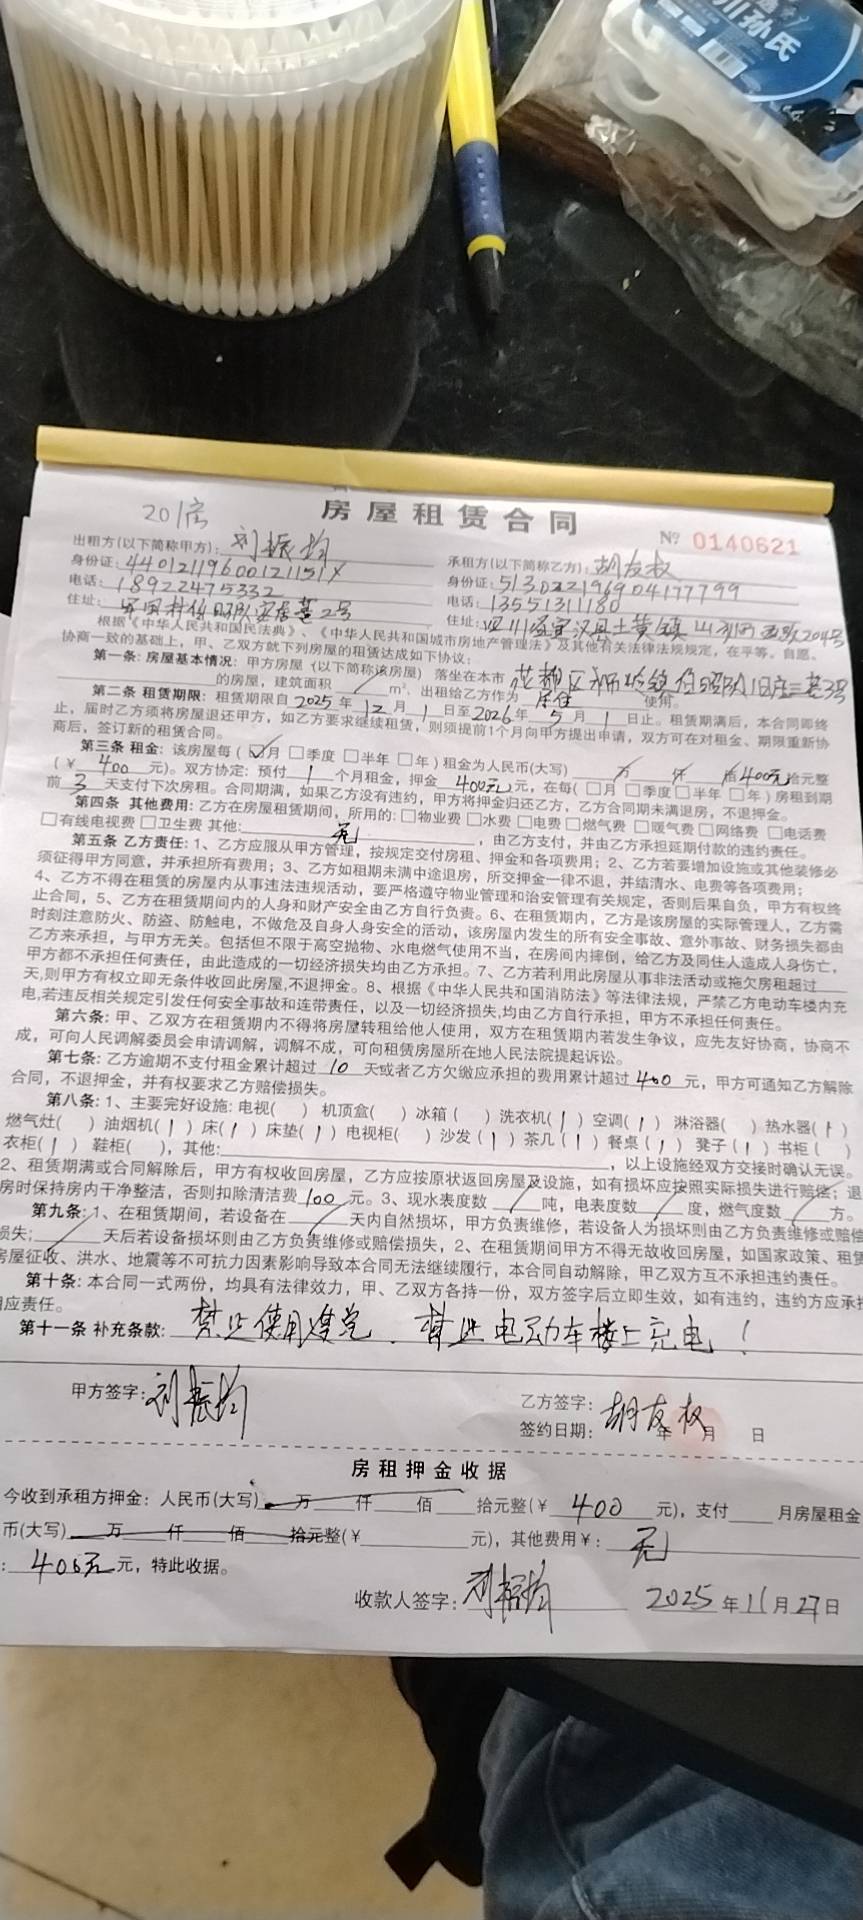 川孙氏
201房
房屋租赁合同
№ 0140621
出租方(以下简称甲方): 刘振均
承租方(以下简称乙方): 胡友权
身份证: 44012119600121151X
身份证: 513022196904177799
电话: 18922475332
电话: 13551311180
住址: 队安居基2号
住址: 四川省宣汉县土黄镇 204号
根据《中华人民共和国民法典》、《中华人民共和国城市房地产管理法》及其他有关法律法规规定，在平等、自愿、
协商一致的基础上，甲、乙双方就下列房屋的租赁达成如下协议:
第一条: 房屋基本情况: 甲方房屋（以下简称该房屋）落坐在本市 花都区 3号
的房屋，建筑面积 m²，出租给乙方作为 居住 使用。
第二条 租赁期限: 租赁期限自 2025 年 12 月 1 日至 2026 年 5 月 1 日止。租赁期满后，本合同即终
止，届时乙方须将房屋退还甲方，如乙方要求继续租赁，则须提前1个月向甲方提出申请，双方可在对租金、期限重新协
商后，签订新的租赁合同。
第三条 租金: 该房屋每 (☑月 □季度 □半年 □年) 租金为人民币(大写) 万 仟 佰 400元 拾元整
(￥ 400 元)。双方协定: 预付 1 个月租金，押金 400元 元，在每( □月 □季度 □半年 □年 ) 房租到期
前 3 天支付下次房租。合同期满，如果乙方没有违约，甲方将押金归还乙方，乙方合同期未满退房，不退押金。
第四条 其他费用: 乙方在房屋租赁期间，所用的: □物业费 □水费 □电费 □燃气费 □暖气费 □网络费 □电话费
□有线电视费 □卫生费 其他: 无 ，由乙方支付，并由乙方承担延期付款的违约责任。
第五条 乙方责任: 1、乙方应服从甲方管理，按规定交付房租、押金和各项费用；2、乙方若要增加设施或其他装修必
须征得甲方同意，并承担所有费用；3、乙方如租期未满中途退房，所交押金一律不退，并结清水、电费等各项费用；
4、乙方不得在租赁的房屋内从事违法违规活动，要严格遵守物业管理和治安管理有关规定，否则后果自负，甲方有权终
止合同，5、乙方在租赁期间内的人身和财产安全由乙方自行负责。6、在租赁期内，乙方是该房屋的实际管理人，乙方需
时刻注意防火、防盗、防触电，不做危及自身人身安全的活动，该房屋内发生的所有安全事故、意外事故、财务损失都由
乙方来承担，与甲方无关。包括但不限于高空抛物、水电燃气使用不当，在房间内摔倒，给乙方及同住人造成人身伤亡，
甲方都不承担任何责任，由此造成的一切经济损失均由乙方承担。7、乙方若利用此房屋从事非法活动或拖欠房租超过
天,则甲方有权立即无条件收回此房屋,不退押金。8、根据《中华人民共和国消防法》等法律法规，严禁乙方电动车楼内充
电,若违反相关规定引发任何安全事故和连带责任，以及一切经济损失,均由乙方自行承担，甲方不承担任何责任。
第六条: 甲、乙双方在租赁期内不得将房屋转租给他人使用，双方在租赁期内若发生争议，应先友好协商，协商不
成，可向人民调解委员会申请调解，调解不成，可向租赁房屋所在地人民法院提起诉讼。
第七条: 乙方逾期不支付租金累计超过 10 天或者乙方欠缴应承担的费用累计超过 400 元，甲方可通知乙方解除
合同，不退押金，并有权要求乙方赔偿损失。
第八条: 1、主要完好设施: 电视( ) 机顶盒( ) 冰箱( ) 洗衣机(1) 空调(1) 淋浴器( ) 热水器(1)
燃气灶( ) 油烟机(1) 床(1) 床垫(1) 电视柜( ) 沙发(1) 茶几(1) 餐桌(1) 凳子(1) 书柜( )
衣柜(1) 鞋柜( ), 其他: ，以上设施经双方交接时确认无误。
2、租赁期满或合同解除后，甲方有权收回房屋，乙方应按原状返回房屋及设施，如有损坏应按照实际损失进行赔偿；退
房时保持房内干净整洁，否则扣除清洁费 100 元。3、现水表度数 吨，电表度数 度，燃气度数 方。
第九条: 1、在租赁期间，若设备在 天内自然损坏，甲方负责维修，若设备人为损坏则由乙方负责维修或赔偿
损失; 天后若设备损坏则由乙方负责维修或赔偿损失，2、在租赁期间甲方不得无故收回房屋，如国家政策、租赁
房屋征收、洪水、地震等不可抗力因素影响导致本合同无法继续履行，本合同自动解除，甲乙双方互不承担违约责任。
第十条: 本合同一式两份，均具有法律效力，甲、乙双方各持一份，双方签字后立即生效，如有违约，违约方应承担
相应责任。
第十一条 补充条款: 禁止使用 、禁止电动车楼上充电！
甲方签字: 刘振均
乙方签字: 胡友权
签约日期: 年 月 日
房租押金收据
今收到承租方押金: 人民币(大写) 万 仟 佰 拾元整(￥ 400 元)，支付 月房屋租金
币(大写) 万 仟 佰 拾元整(￥ 元)，其他费用￥: 无
: 400元 元，特此收据。
收款人签字: 刘振均 2025 年 11 月 27 日